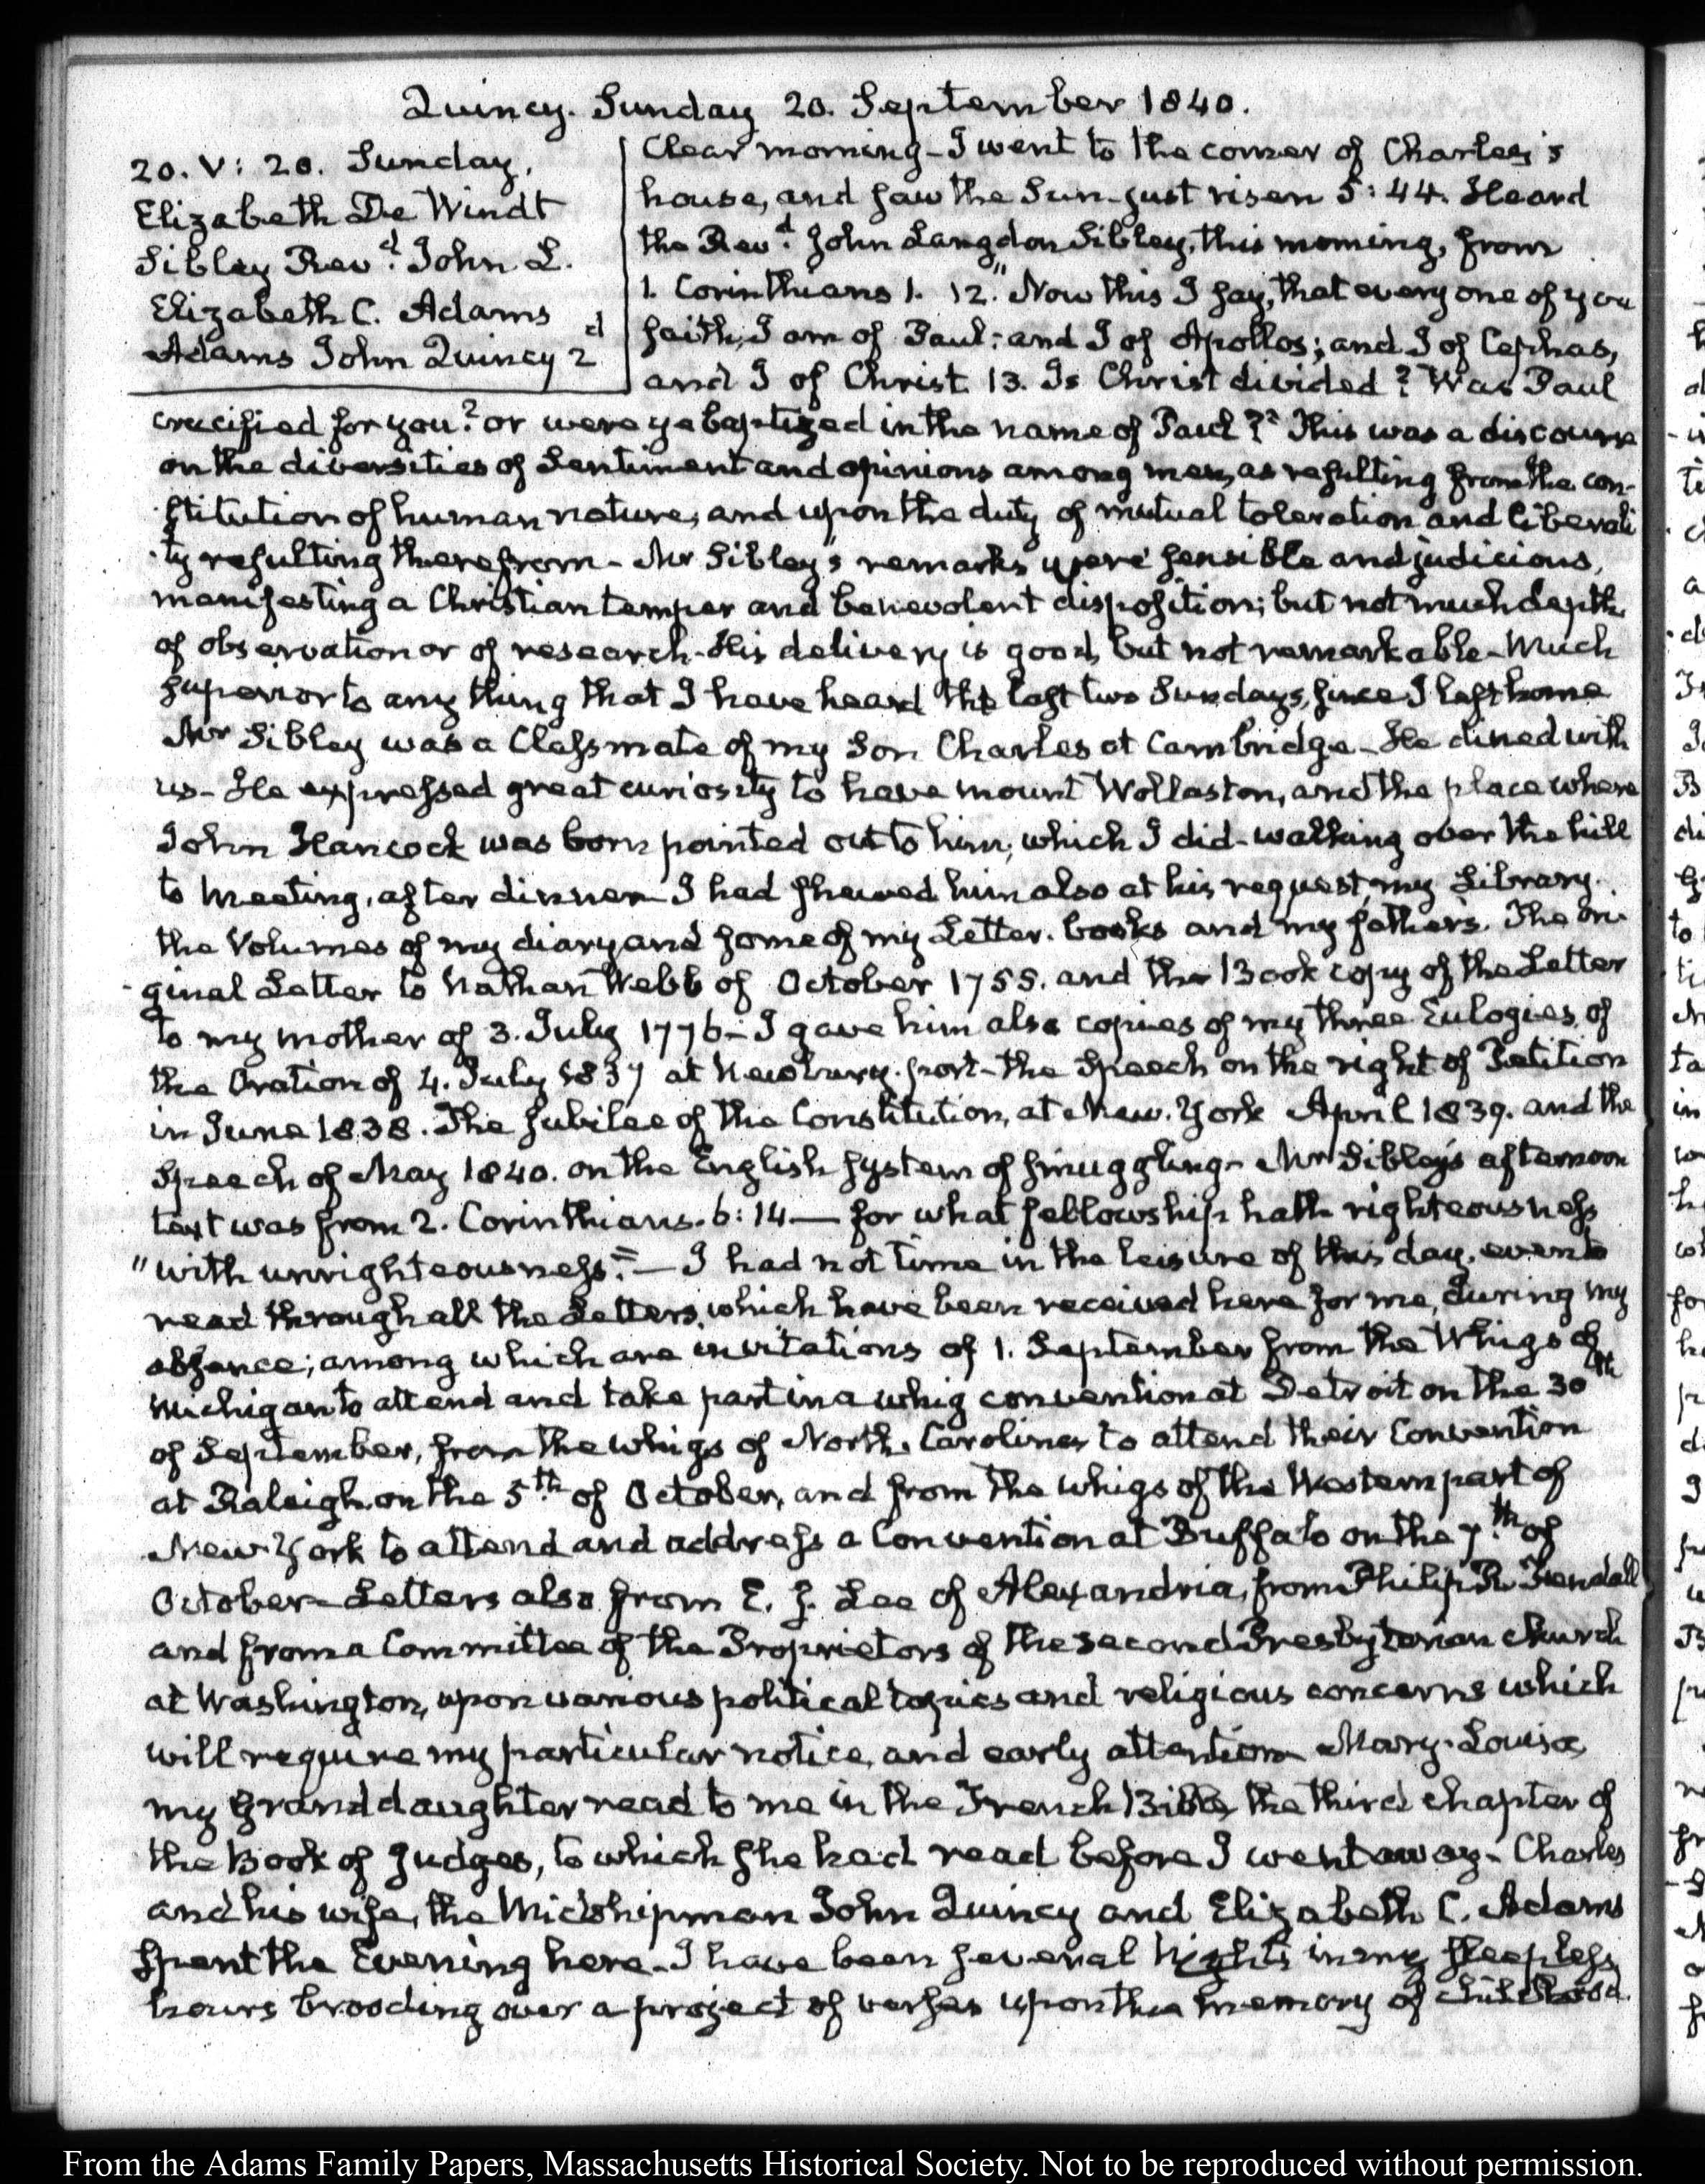 Quincy. Sunday 20. September 1840.
20. V: 20. Sunday.
Elizabeth De Windt
Sibley Revd. John L.
Elizabeth C. Adams
Adams John Quincy 2d
Clear morning - I went to the corner of Charles's
house, and saw the Sun just risen 5:44. Heard
the Revd. John Langdon Sibley, this morning, from
1. Corinthians 1. 12. "Now this I say, that every one of you
saith, I am of Paul; and I of Apollos; and I of Cephas,
and I of Christ. 13. Is Christ divided? Was Paul
crucified for you? or were ye baptized in the name of Paul?" This was a discourse
on the diversities of Sentiment and opinions among men, as resulting from the con-
stitution of human nature, and upon the duty of mutual toleration and liberali
ty resulting therefrom - Mr Sibley's remarks were sensible and judicious,
manifesting a Christian temper and benevolent disposition; but not much depth
of observation or of research - His delivery is good, but not remarkable - Much
superior to any thing that I have heard the last two Sundays, since I left home
Mr Sibley was a Classmate of my Son Charles at Cambridge - He dined with
us - He expressed great curiosity to have mount Wollaston, and the place where
John Hancock was born pointed out to him, which I did - walking over the hill
to Meeting, after dinner - I had shewed him also at his request, my Library.
the Volumes of my diary and some of my Letter-books and my father's. The ori-
ginal Letter to Nathan Webb of October 1755. and the Book copy of the Letter
to my mother of 3. July 1776 - I gave him also copies of my three Eulogies, of
the Oration of 4. July 1837 at Newbury-port - the Speech on the right of Petition
in June 1838. The Jubilee of the Constitution, at New-York April 1839. and the
Speech of May 1840. on the English system of smuggling - Mr Sibley's afternoon
text was from 2. Corinthians. 6:14 — for what fellowship hath righteousness
"with unrighteousness?" — I had not time in the leisure of this day, even to
read through all the Letters, which have been received here for me, during my
absence; among which are invitations of 1. September from the Whigs of
Michigan to attend and take part in a whig convention at Detroit on the 30th
of September, from the whigs of North-Carolina to attend their Convention
at Raleigh on the 5th of October, and from the whigs of the Western part of
New-York to attend and address a Convention at Buffalo on the 7th of
October - Letters also from E. J. Lee of Alexandria, from Philip R. Fendall
and from a Committee of the Proprietors of the Second Presbyterian Church
at Washington, upon various political topics and religious concerns which
will require my particular notice, and early attention - Mary-Louisa
my Granddaughter read to me in the French Bible, the third chapter of
the Book of Judges, to which she had read before I went away - Charles
and his wife, the Midshipman John Quincy and Elizabeth C. Adams
spent the Evening here - I have been several Nights in my sleepless
hours brooding over a project of verses upon the memory of Childhood.
From the Adams Family Papers, Massachusetts Historical Society. Not to be reproduced without permission.